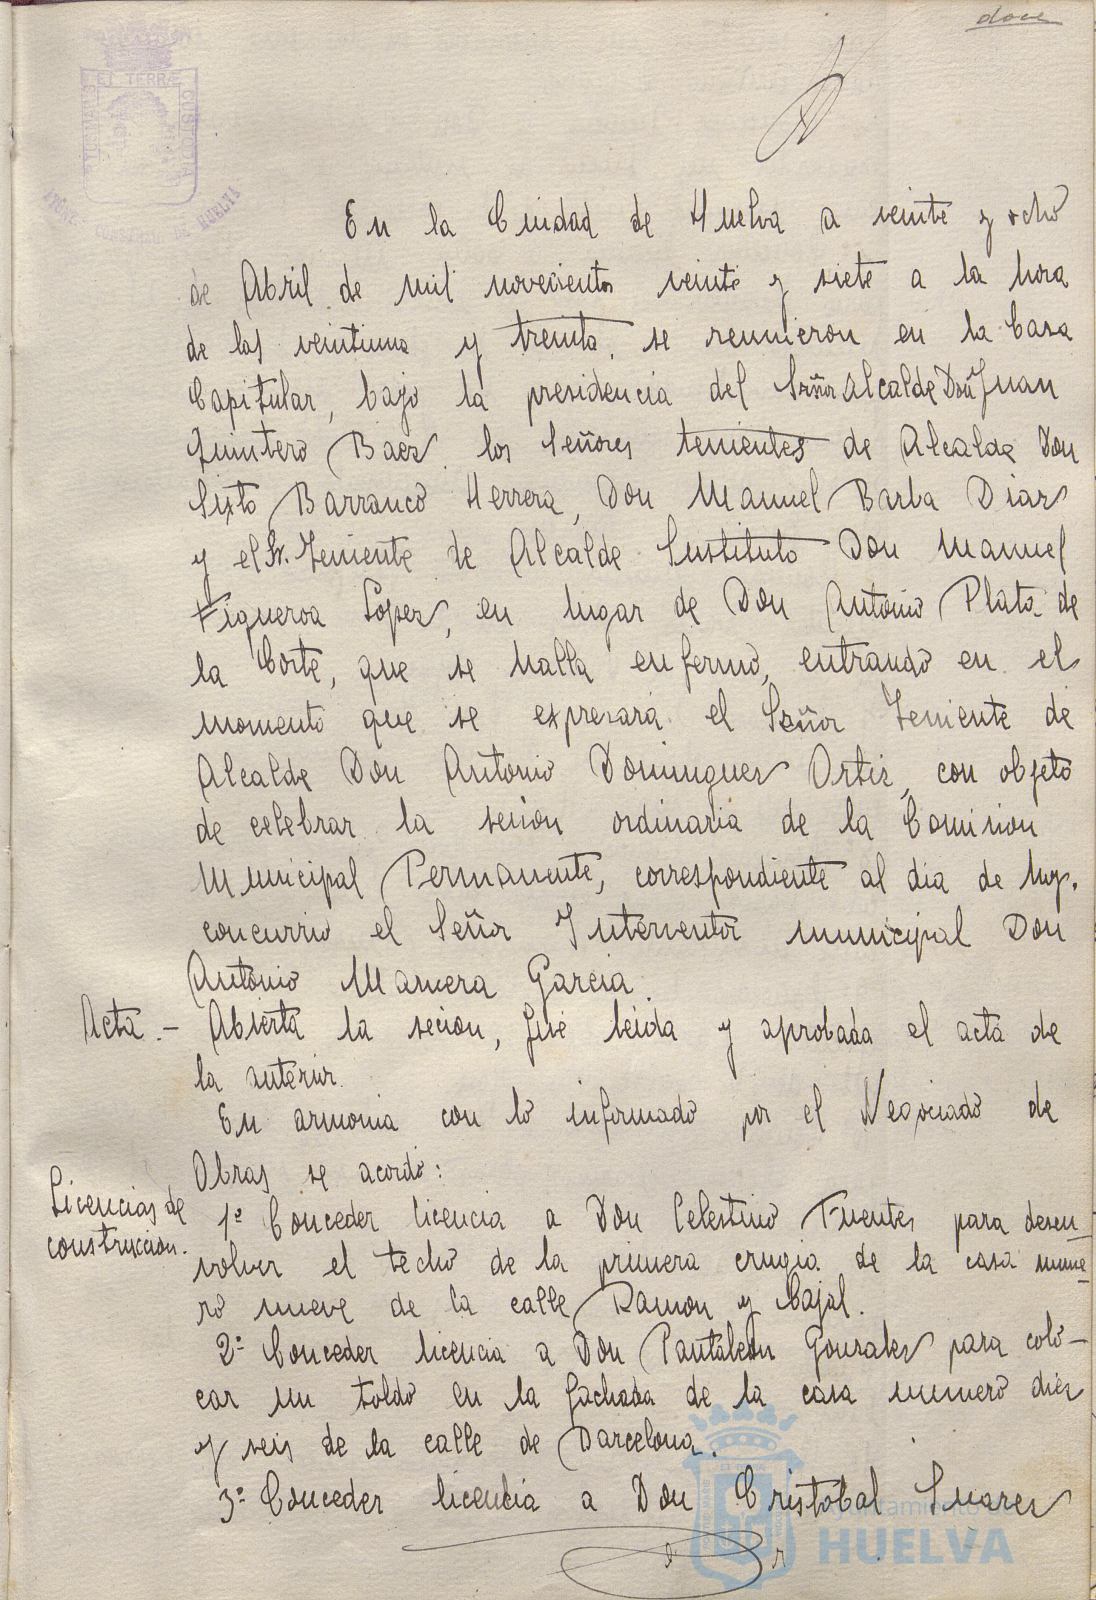 doce
ET TERRÆ
CUSTODIA
En la Ciudad de Huelva a veinte y ocho
de Abril de mil novecientos veinte y siete a la hora
de las veintiuna y treinta, se reunieron en la Casa
Capitular, bajo la presidencia del Señor Alcalde Don Juan
Quintero Baez, los Señores tenientes de Alcalde Don
Sixto Barranco Herrera, Don Manuel Barba Diaz
y el Sr. Teniente de Alcalde Sustituto Don Manuel
Figueroa Lopez, en lugar de Don Antonio Plata de
la Corte, que se halla enfermo, entrando en el
momento que se expresará el Señor Teniente de
Alcalde Don Antonio Dominguez Ortiz, con objeto
de celebrar la sesion ordinaria de la Comision
Municipal Permanente, correspondiente al dia de hoy.
concurrio el Señor Interventor municipal Don
Antonio Manera Garcia.
Acta.- Abierta la secion, fué leida y aprobada el acta de
la anterior.
En armonia con lo informado por el Negociado de
Obras se acordó:
Licencias de
construccion.
1º Conceder licencia a Don Celestino Fuentes para desen
volver el techo de la primera crugia de la casa nume
ro nueve de la calle Ramon y Cajal.
2º Conceder licencia a Don Pantaleon Gonzalez para colo-
car un toldo en la fachada de la casa numero diez
y seis de la calle de Barcelona.
3º Conceder licencia a Don Cristobal Suarez
Ayuntamiento de
HUELVA